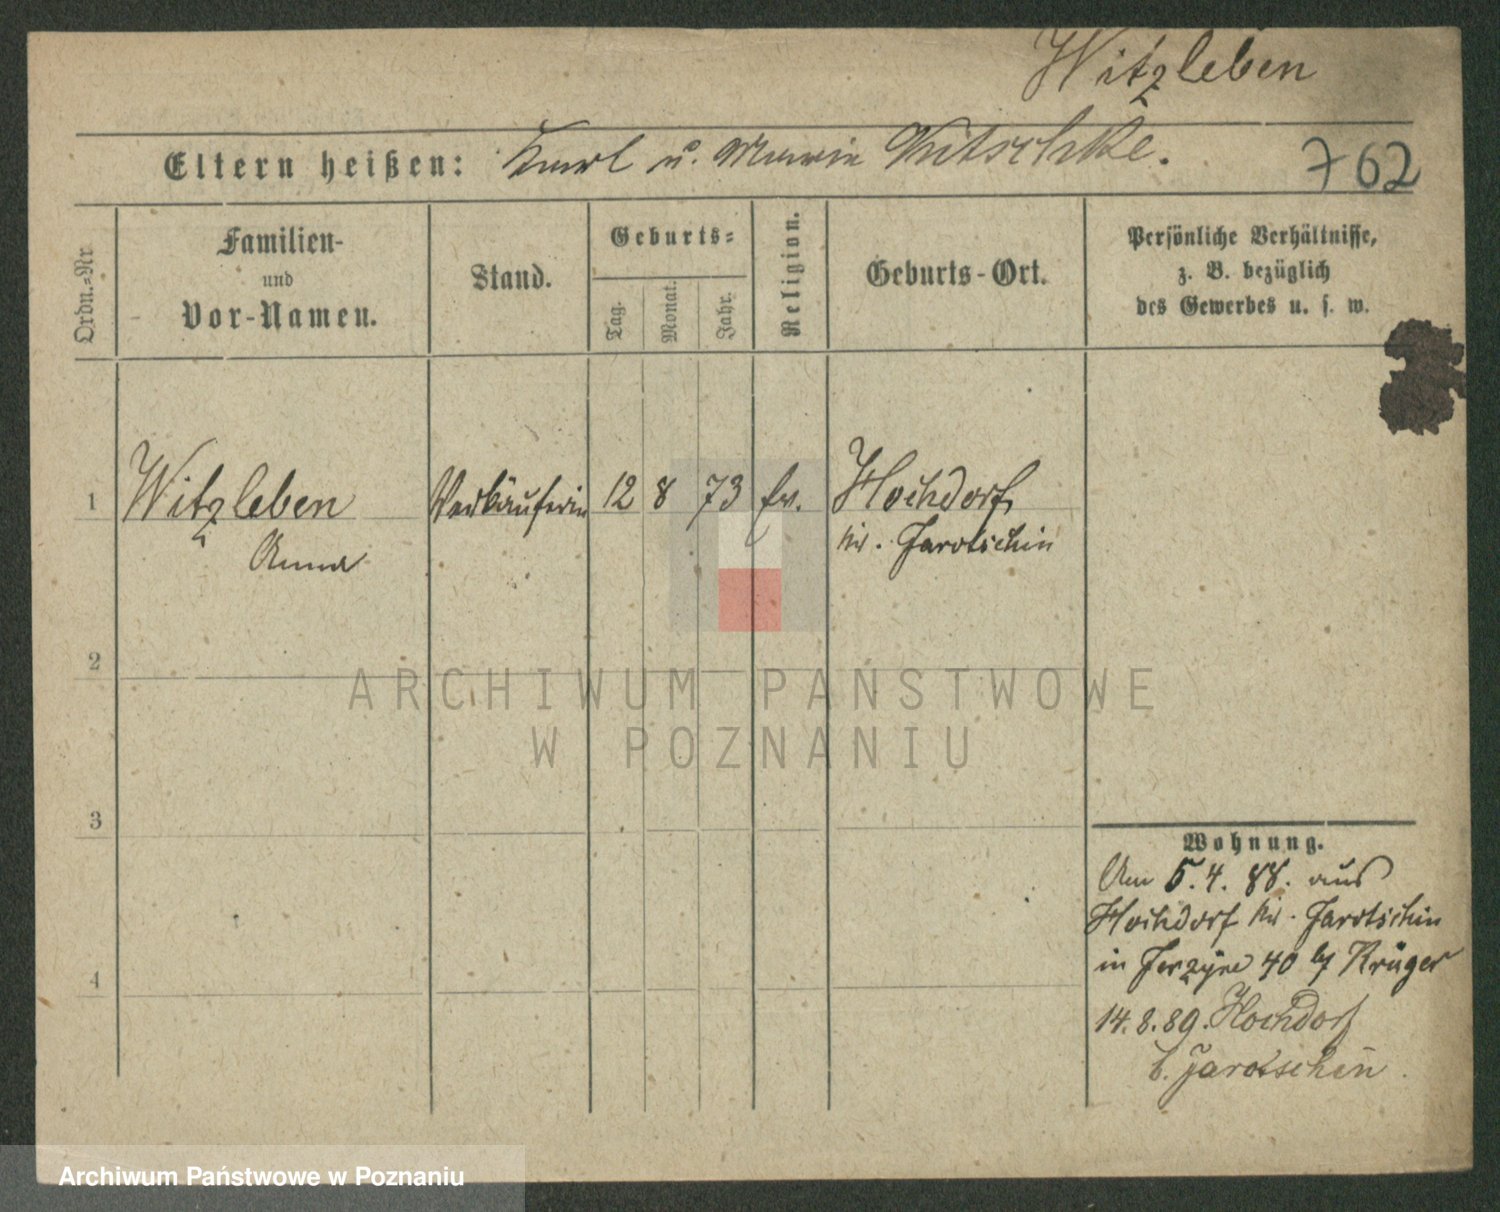 Witzleben
Eltern heißen: Karl u. Marie Nitschke.
762
Ordn.-Nr
Familien-
und
Vor-Namen.
Stand.
Geburts-
Tag.
Monat.
Jahr.
Religion.
Geburts-Ort.
Persönliche Verhältnisse,
z. B. bezüglich
des Gewerbes u. s. w.
1 Witzleben Verkäuferin 12 8 73 ev. Hochdorf,
Anna Kr. Jarotschin
2
3
4
Wohnung.
Am 5. 4. 88. aus
Hochdorf Kr. Jarotschin
in Jerzyce 40 b/ Krüger
14. 8. 89. Hochdorf
b. Jarotschin.
ARCHIWUM PAŃSTWOWE
W POZNANIU
Archiwum Państwowe w Poznaniu